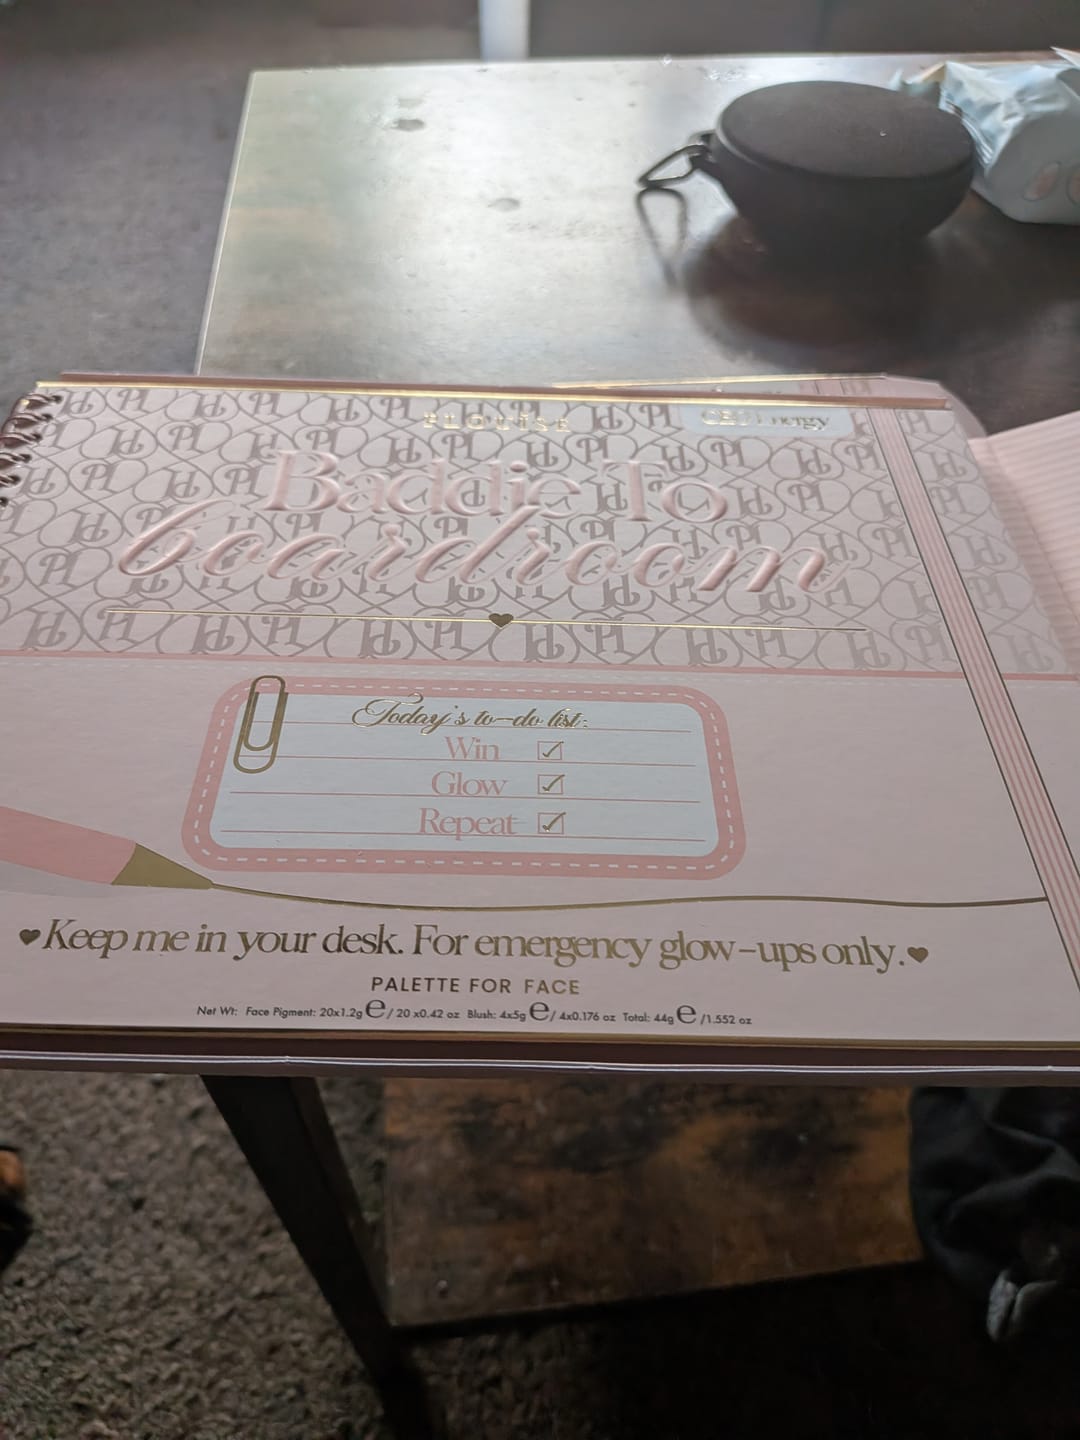 PLOUISE
CEO Energy
Baddie To
boardroom
Today's to-do list:
Win
Glow
Repeat
Keep me in your desk. For emergency glow-ups only.
PALETTE FOR FACE
Net Wt: Face Pigment: 20x1.2g e / 20 x0.42 oz Blush: 4x5g e / 4x0.176 oz Total: 44g e /1.552 oz